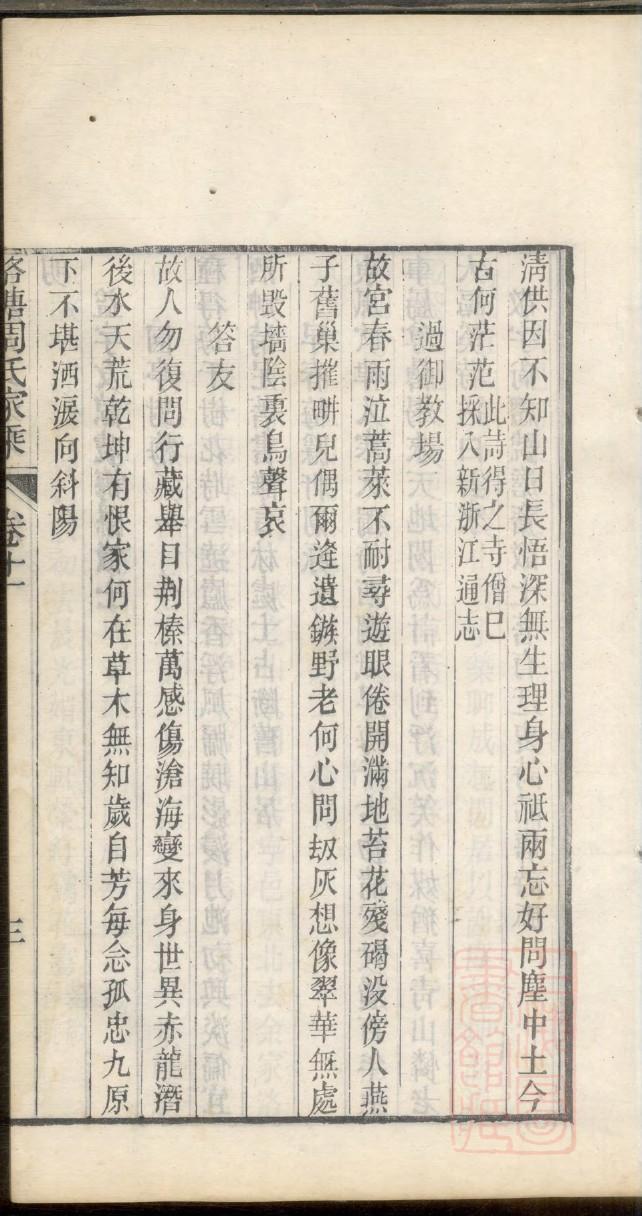 清供因不知山日長悟深無生理身心祇兩忘好問塵中土今
古何茫茫此詩得之寺僧巳
採入新浙江通志
過御教場
故宮春雨泣蒿萊不耐尋遊眼倦開滿地苔花殘碣没傍人燕
子舊巢摧畊兒偶爾逢遺鏃野老何心問刼灰想像翠華無處
所毀墻陰裏鳥聲哀
答友
故人勿復問行藏舉目荆榛萬感傷滄海變來身世異赤龍潛
後水天荒乾坤有恨家何在草木無知歲自芳每念孤忠九原
下不堪洒淚向斜陽
周氏家乘
卷十一
三